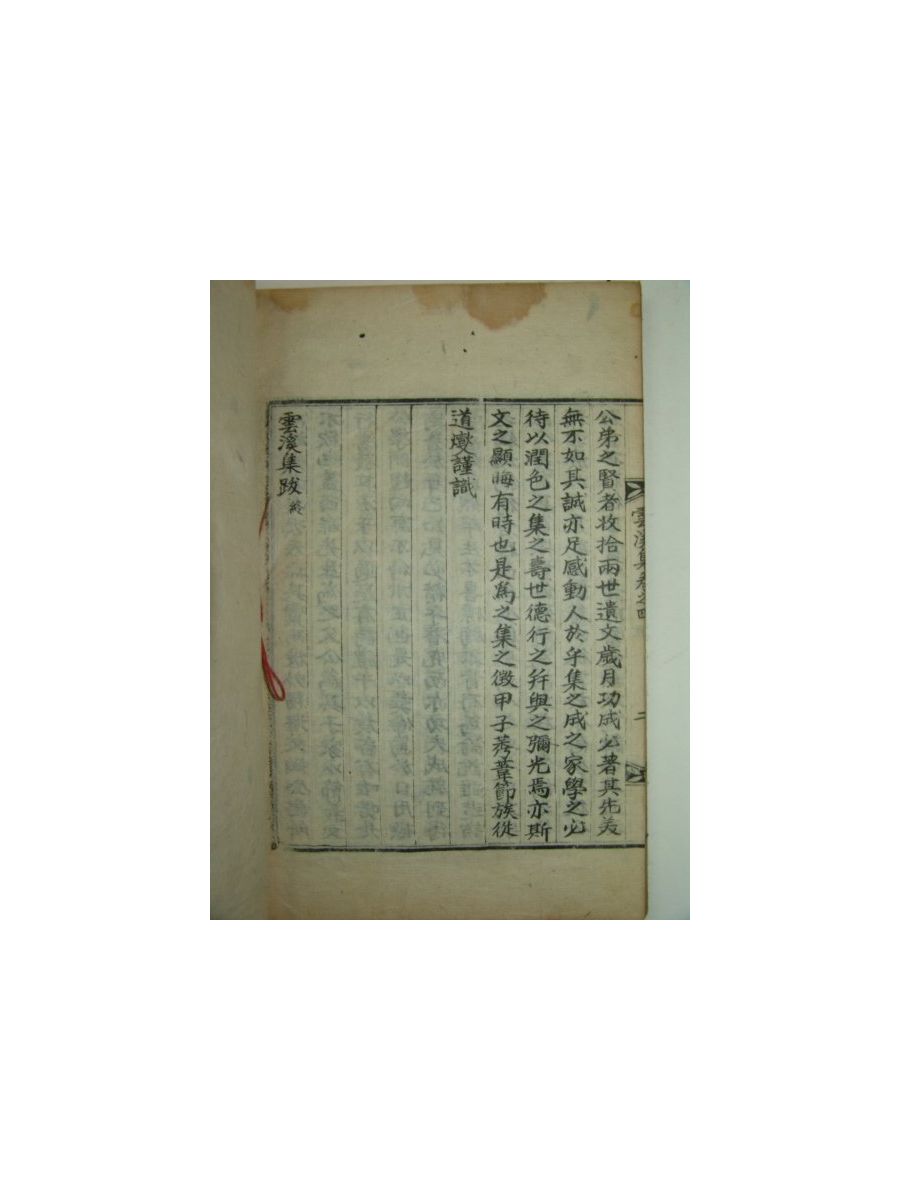 雲溪集卷之四 二
公弟之賢者收拾兩世遺文歲月功成必著其先美
無不如其誠亦足感動人於乎集之成之家學之必
待以潤色之集之壽世德行之幷與之彌光焉亦斯
文之顯晦有時也是爲之集之徵甲子葭葦節族從
道燮謹識
雲溪集跋 終